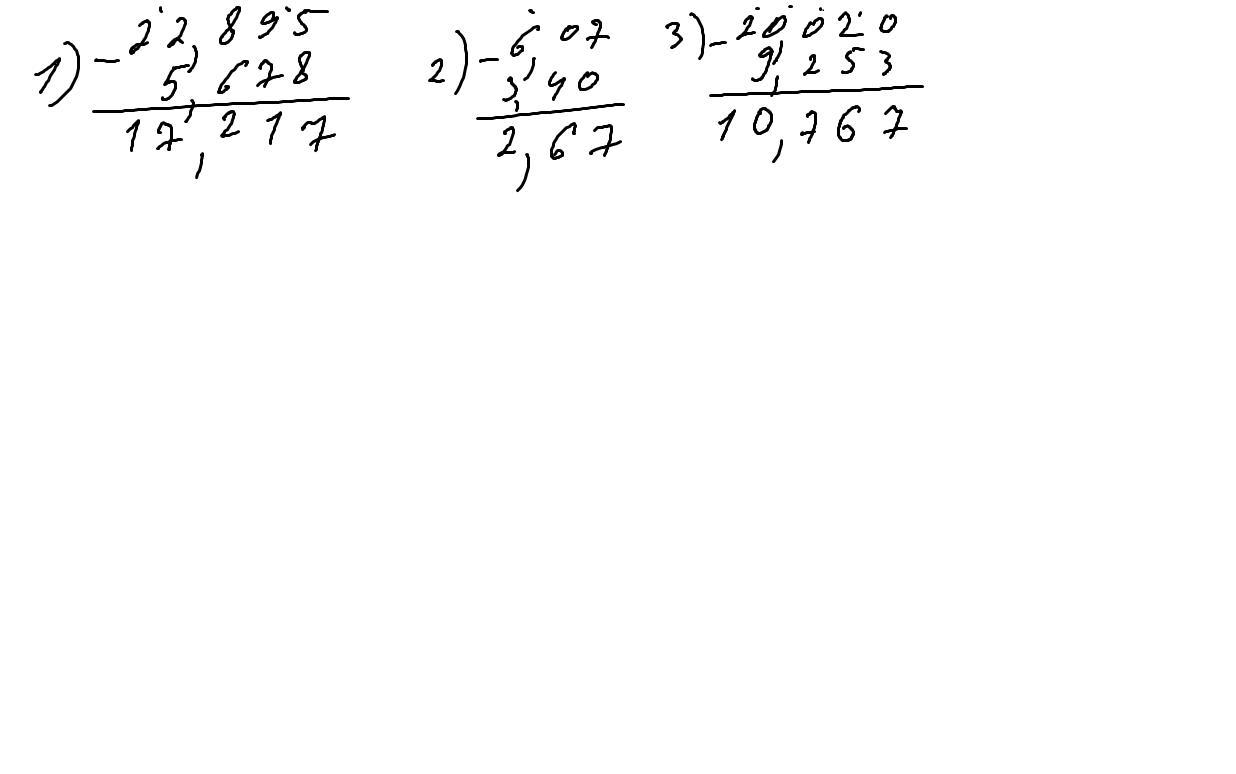 1) - 22,895
5,678
17,217
2) - 6,07
3,40
2,67
3) - 20,020
9,253
10,767